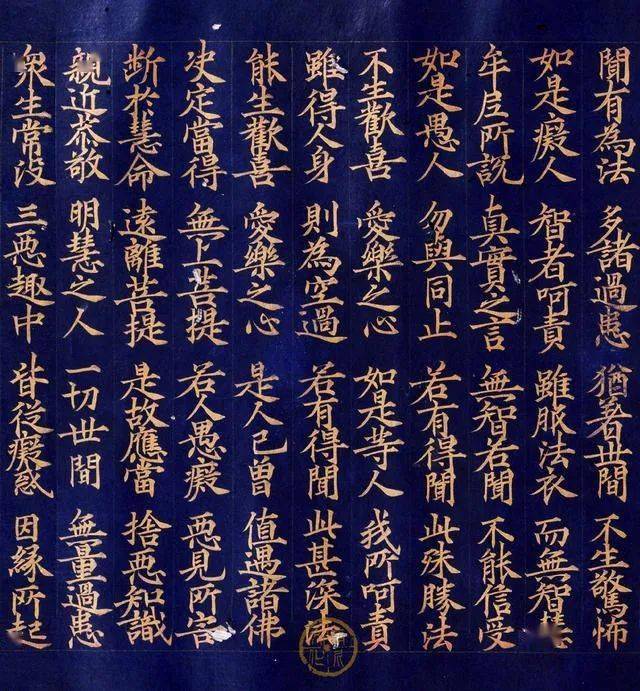 聞有為法 多諸過患 猶著世間 不生驚怖
如是癡人 智者呵責 雖服法衣 而無智慧
牟尼所說 真實之言 無智若聞 不能信受
如是愚人 勿與同止 若有得聞 此殊勝法
不生歡喜 愛樂之心 如是等人 我所呵責
雖得人身 則為空過 若有得聞 此甚深法
能生歡喜 愛樂之心 是人已曾 值遇諸佛
决定當得 無上菩提 若人愚癡 悪見所害
断於慧命 遠離菩提 是故應當 捨悪知識
親近恭敬 明慧之人 一切世間 無量過患
衆生常没 三悪趣中 皆從癡惑 因緣所起